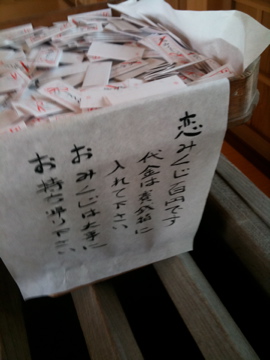 恋みくじ百円です
代金は賽銭箱に
入れて下さい
おみくじは大事に
お持ち帰り下さい